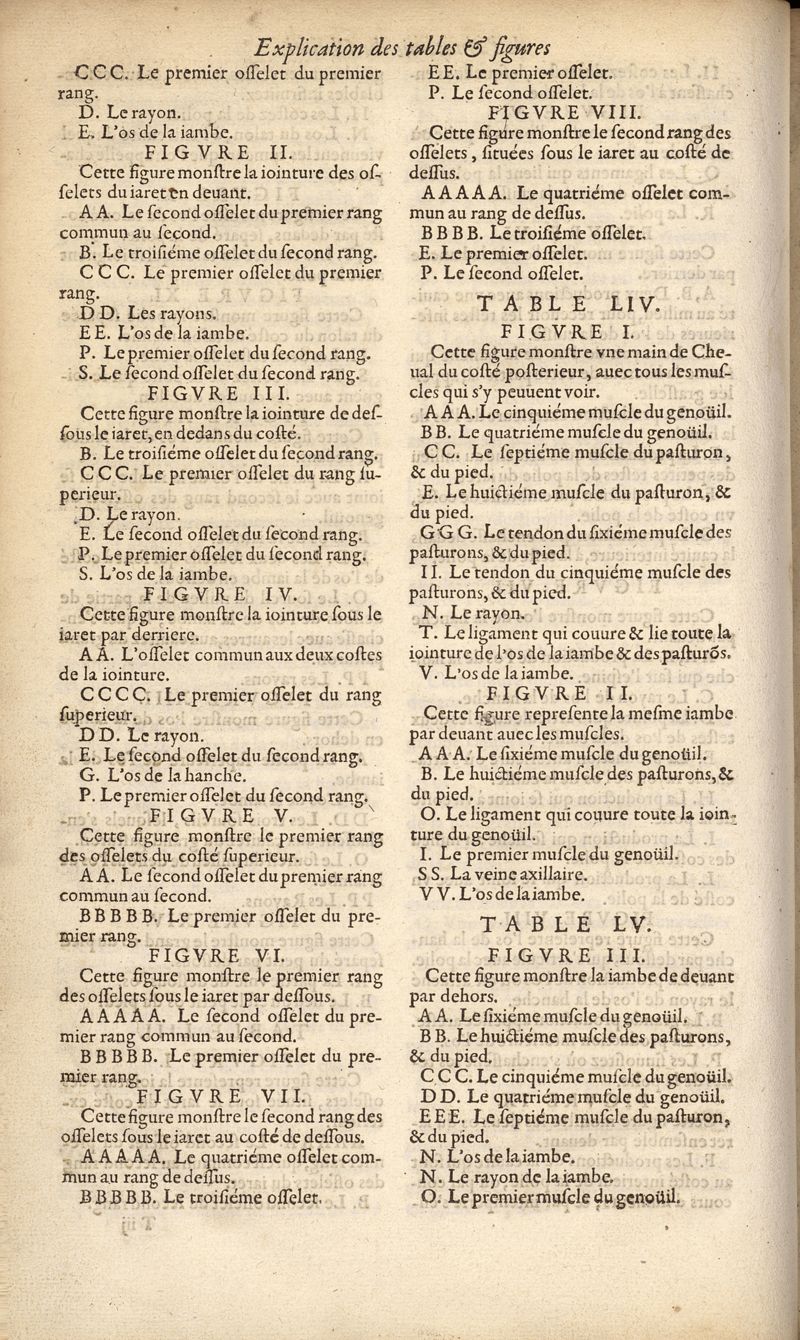 Explication des tables & figures
CCC. Le premier oſſelet du premier
rang.
D. Le rayon.
E. L'os de la iambe.
FIGVRE II.
Cette figure monſtre la iointure des oſ-
ſelets du iaret en deuant.
AA. Le ſecond oſſelet du premier rang
commun au ſecond.
B. Le troiſiéme oſſelet du ſecond rang.
CCC. Le premier oſſelet du premier
rang.
DD. Les rayons.
EE. L'os de la iambe.
P. Le premier oſſelet du ſecond rang.
S. Le ſecond oſſelet du ſecond rang.
FIGVRE III.
Cette figure monſtre la iointure de deſ-
ſous le iaret, en dedans du coſté.
B. Le troiſiéme oſſelet du ſecond rang.
CCC. Le premier oſſelet du rang ſu-
perieur.
D. Le rayon.
E. Le ſecond oſſelet du ſecond rang.
P. Le premier oſſelet du ſecond rang.
S. L'os de la iambe.
FIGVRE IV.
Cette figure monſtre la iointure ſous le
iaret par derriere.
AA. L'oſſelet commun aux deux coſtes
de la iointure.
CCCC. Le premier oſſelet du rang
ſuperieur.
DD. Le rayon.
E. Le ſecond oſſelet du ſecond rang.
G. L'os de la hanche.
P. Le premier oſſelet du ſecond rang.
FIGVRE V.
Cette figure monſtre le premier rang
des oſſelets du coſté ſuperieur.
AA. Le ſecond oſſelet du premier rang
commun au ſecond.
BBBBB. Le premier oſſelet du pre-
mier rang.
FIGVRE VI.
Cette figure monſtre le premier rang
des oſſelets ſous le iaret par deſſous.
AAAAA. Le ſecond oſſelet du pre-
mier rang commun au ſecond.
BBBBB. Le premier oſſelet du pre-
mier rang.
FIGVRE VII.
Cette figure monſtre le ſecond rang des
oſſelets ſous le iaret au coſté de deſſous.
AAAAA. Le quatriéme oſſelet com-
mun au rang de deſſus.
BBBBB. Le troiſiéme oſſelet.
EE. Le premier oſſelet.
P. Le ſecond oſſelet.
FIGVRE VIII.
Cette figure monſtre le ſecond rang des
oſſelets, ſituées ſous le iaret au coſté de
deſſus.
AAAAA. Le quatriéme oſſelet com-
mun au rang de deſſus.
BBBB. Le troiſiéme oſſelet.
E. Le premier oſſelet.
P. Le ſecond oſſelet.
TABLE LIV.
FIGVRE I.
Cette figure monſtre vne main de Che-
ual du coſté poſterieur, auec tous les muſ-
cles qui s'y peuuent voir.
AAA. Le cinquiéme muſcle du genoüil.
BB. Le quatriéme muſcle du genoüil.
CC. Le ſeptiéme muſcle du paſturon,
& du pied.
E. Le huictiéme muſcle du paſturon, &
du pied.
GGG. Le tendon du ſixiéme muſcle des
paſturons, & du pied.
II. Le tendon du cinquiéme muſcle des
paſturons, & du pied.
N. Le rayon.
T. Le ligament qui couure & lie toute la
iointure de l'os de la iambe & des paſturõs.
V. L'os de la iambe.
FIGVRE II.
Cette figure repreſente la meſme iambe
par deuant auec les muſcles.
AAA. Le ſixiéme muſcle du genoüil.
B. Le huictiéme muſcle des paſturons, &
du pied.
O. Le ligament qui couure toute la ioin-
ture du genoüil.
I. Le premier muſcle du genoüil.
SS. La veine axillaire.
VV. L'os de la iambe.
TABLE LV.
FIGVRE III.
Cette figure monſtre la iambe de deuant
par dehors.
AA. Le ſixiéme muſcle du genoüil.
BB. Le huictiéme muſcle des paſturons,
& du pied.
CCC. Le cinquiéme muſcle du genoüil.
DD. Le quatriéme muſcle du genoüil.
EEE. Le ſeptiéme muſcle du paſturon,
& du pied.
N. L'os de la iambe.
N. Le rayon de la iambe.
O. Le premier muſcle du genoüil.